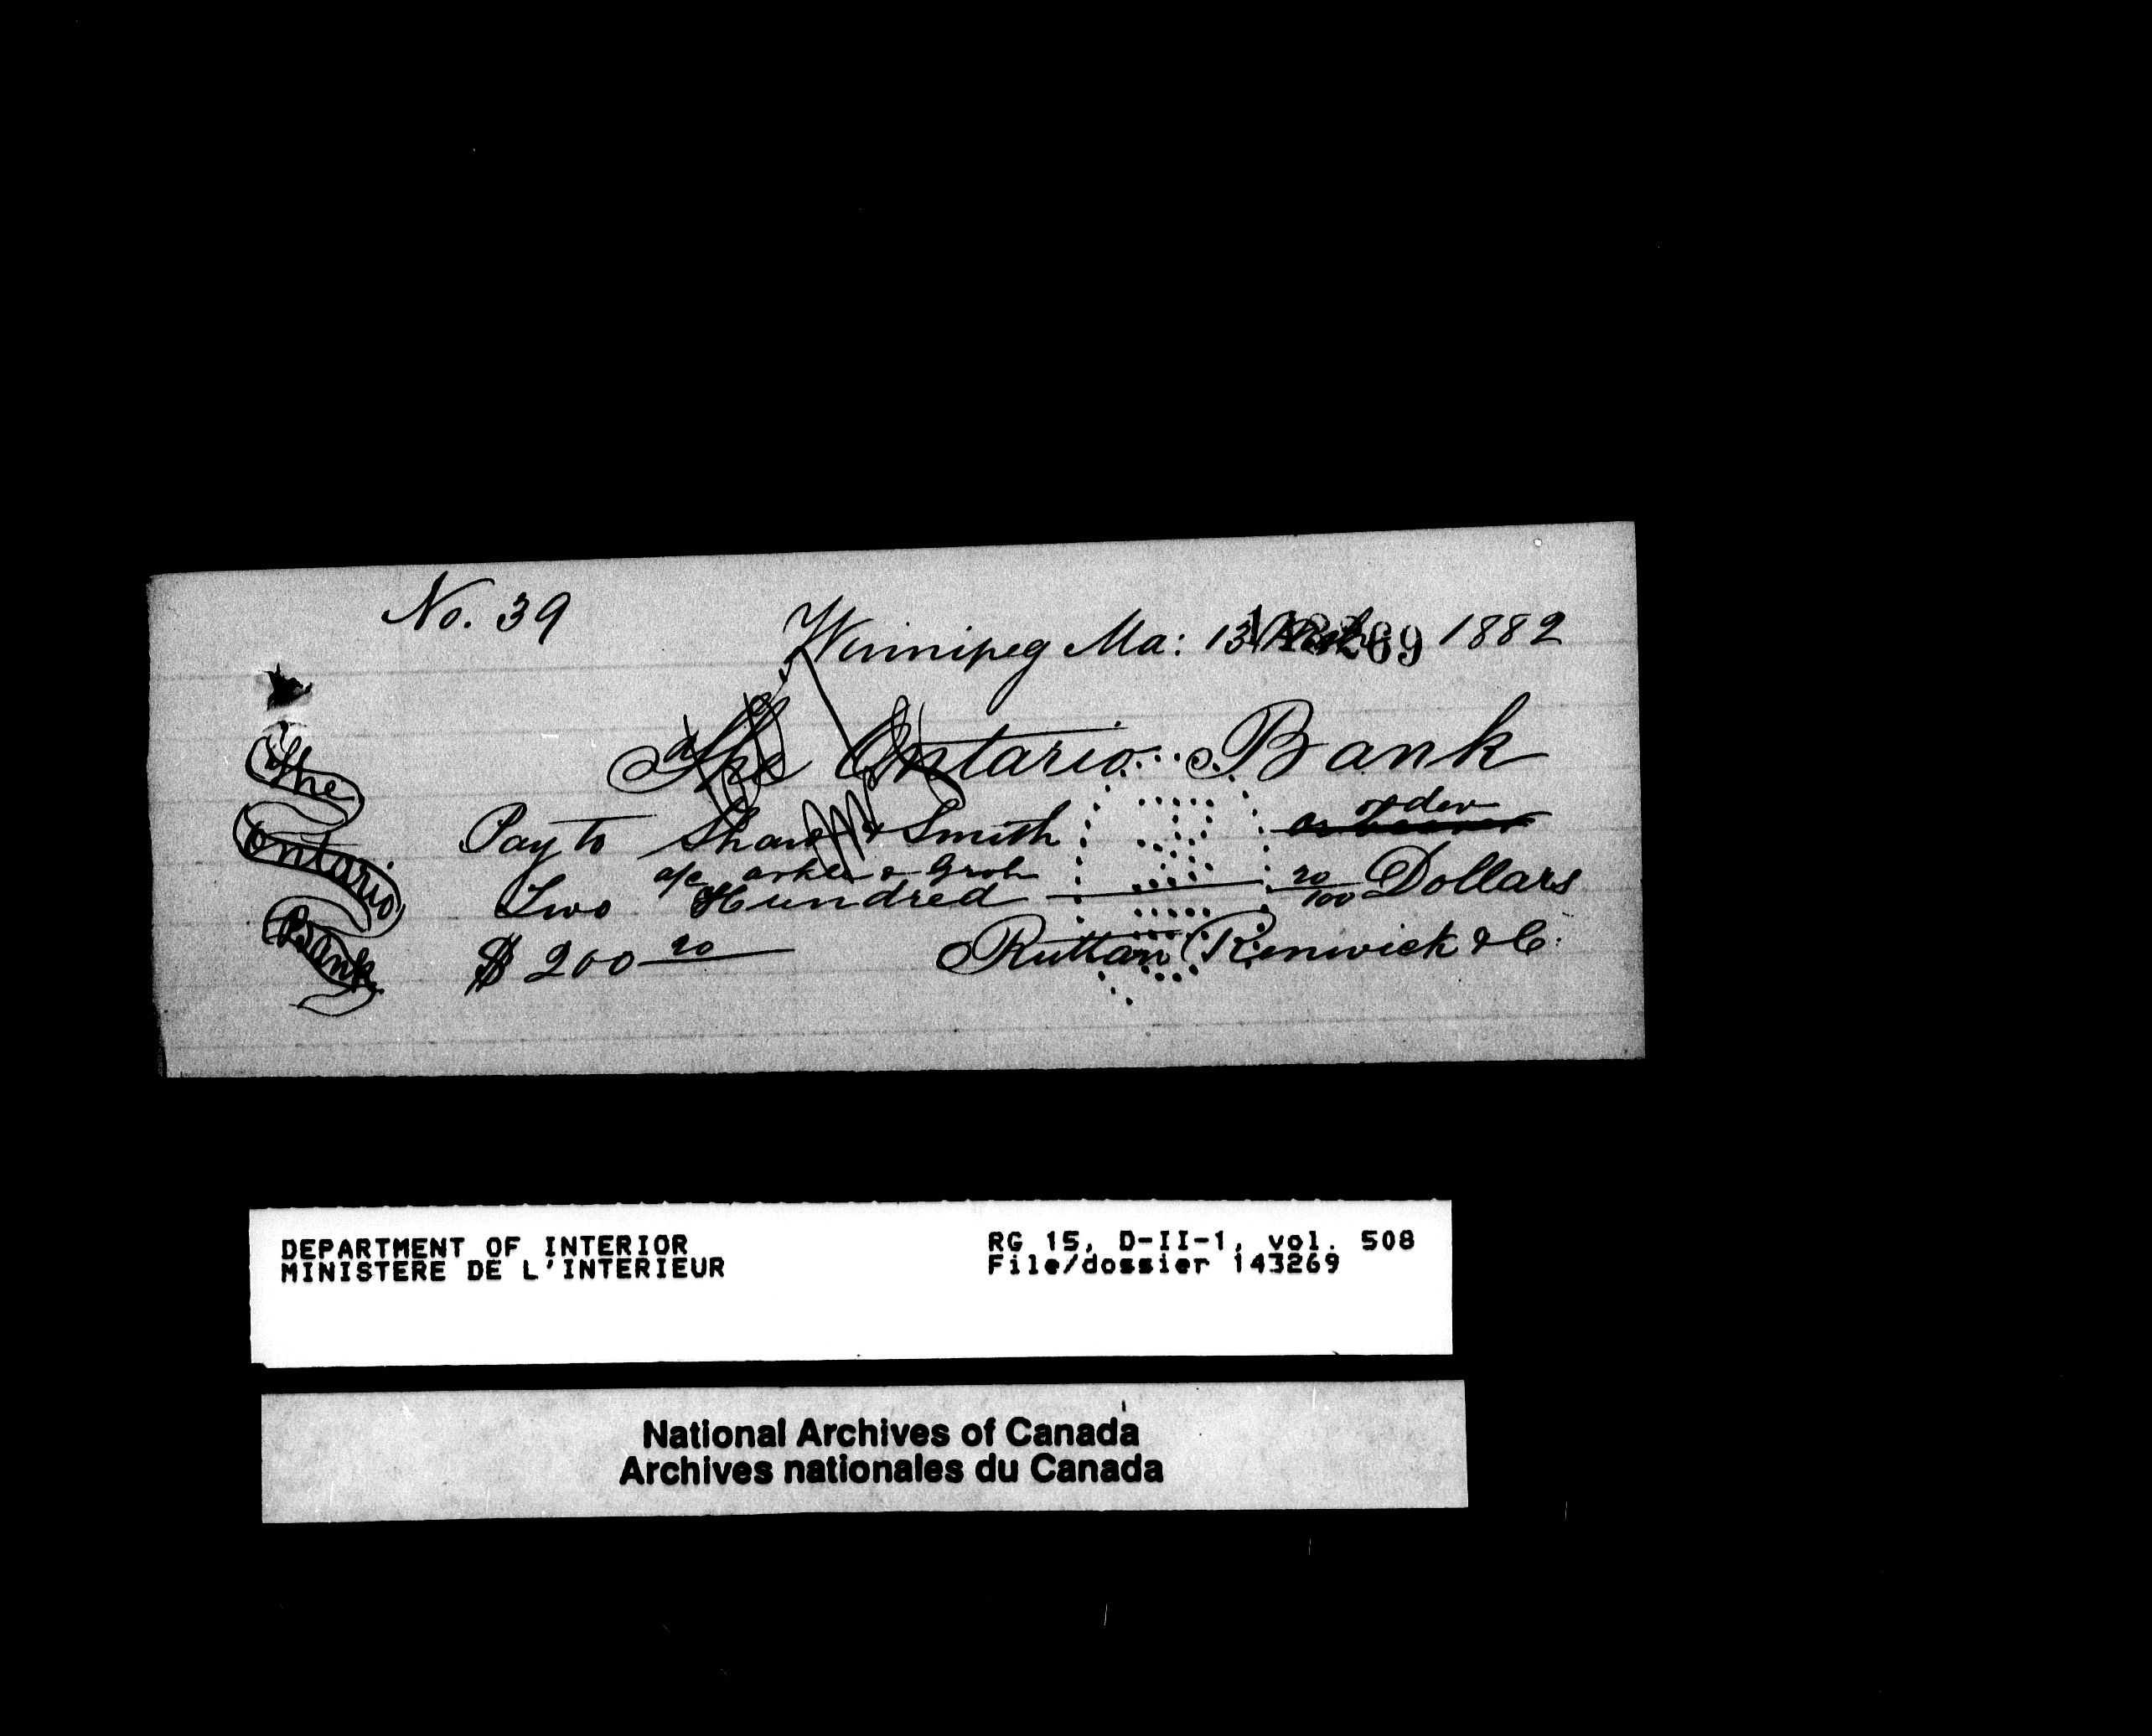 No. 39
Winnipeg Ma: 13 1882
143269
The Ontario Bank
The
Ontario
Bank
Pay to Shaw & Smith or bearer order
a/c &
Two Hundred 20/100 Dollars
$ 200 20
Ruttan Renwick & Co:
DEPARTMENT OF INTERIOR RG 15, D-II-1, vol. 508
MINISTERE DE L'INTERIEUR File/dossier 143269
National Archives of Canada
Archives nationales du Canada